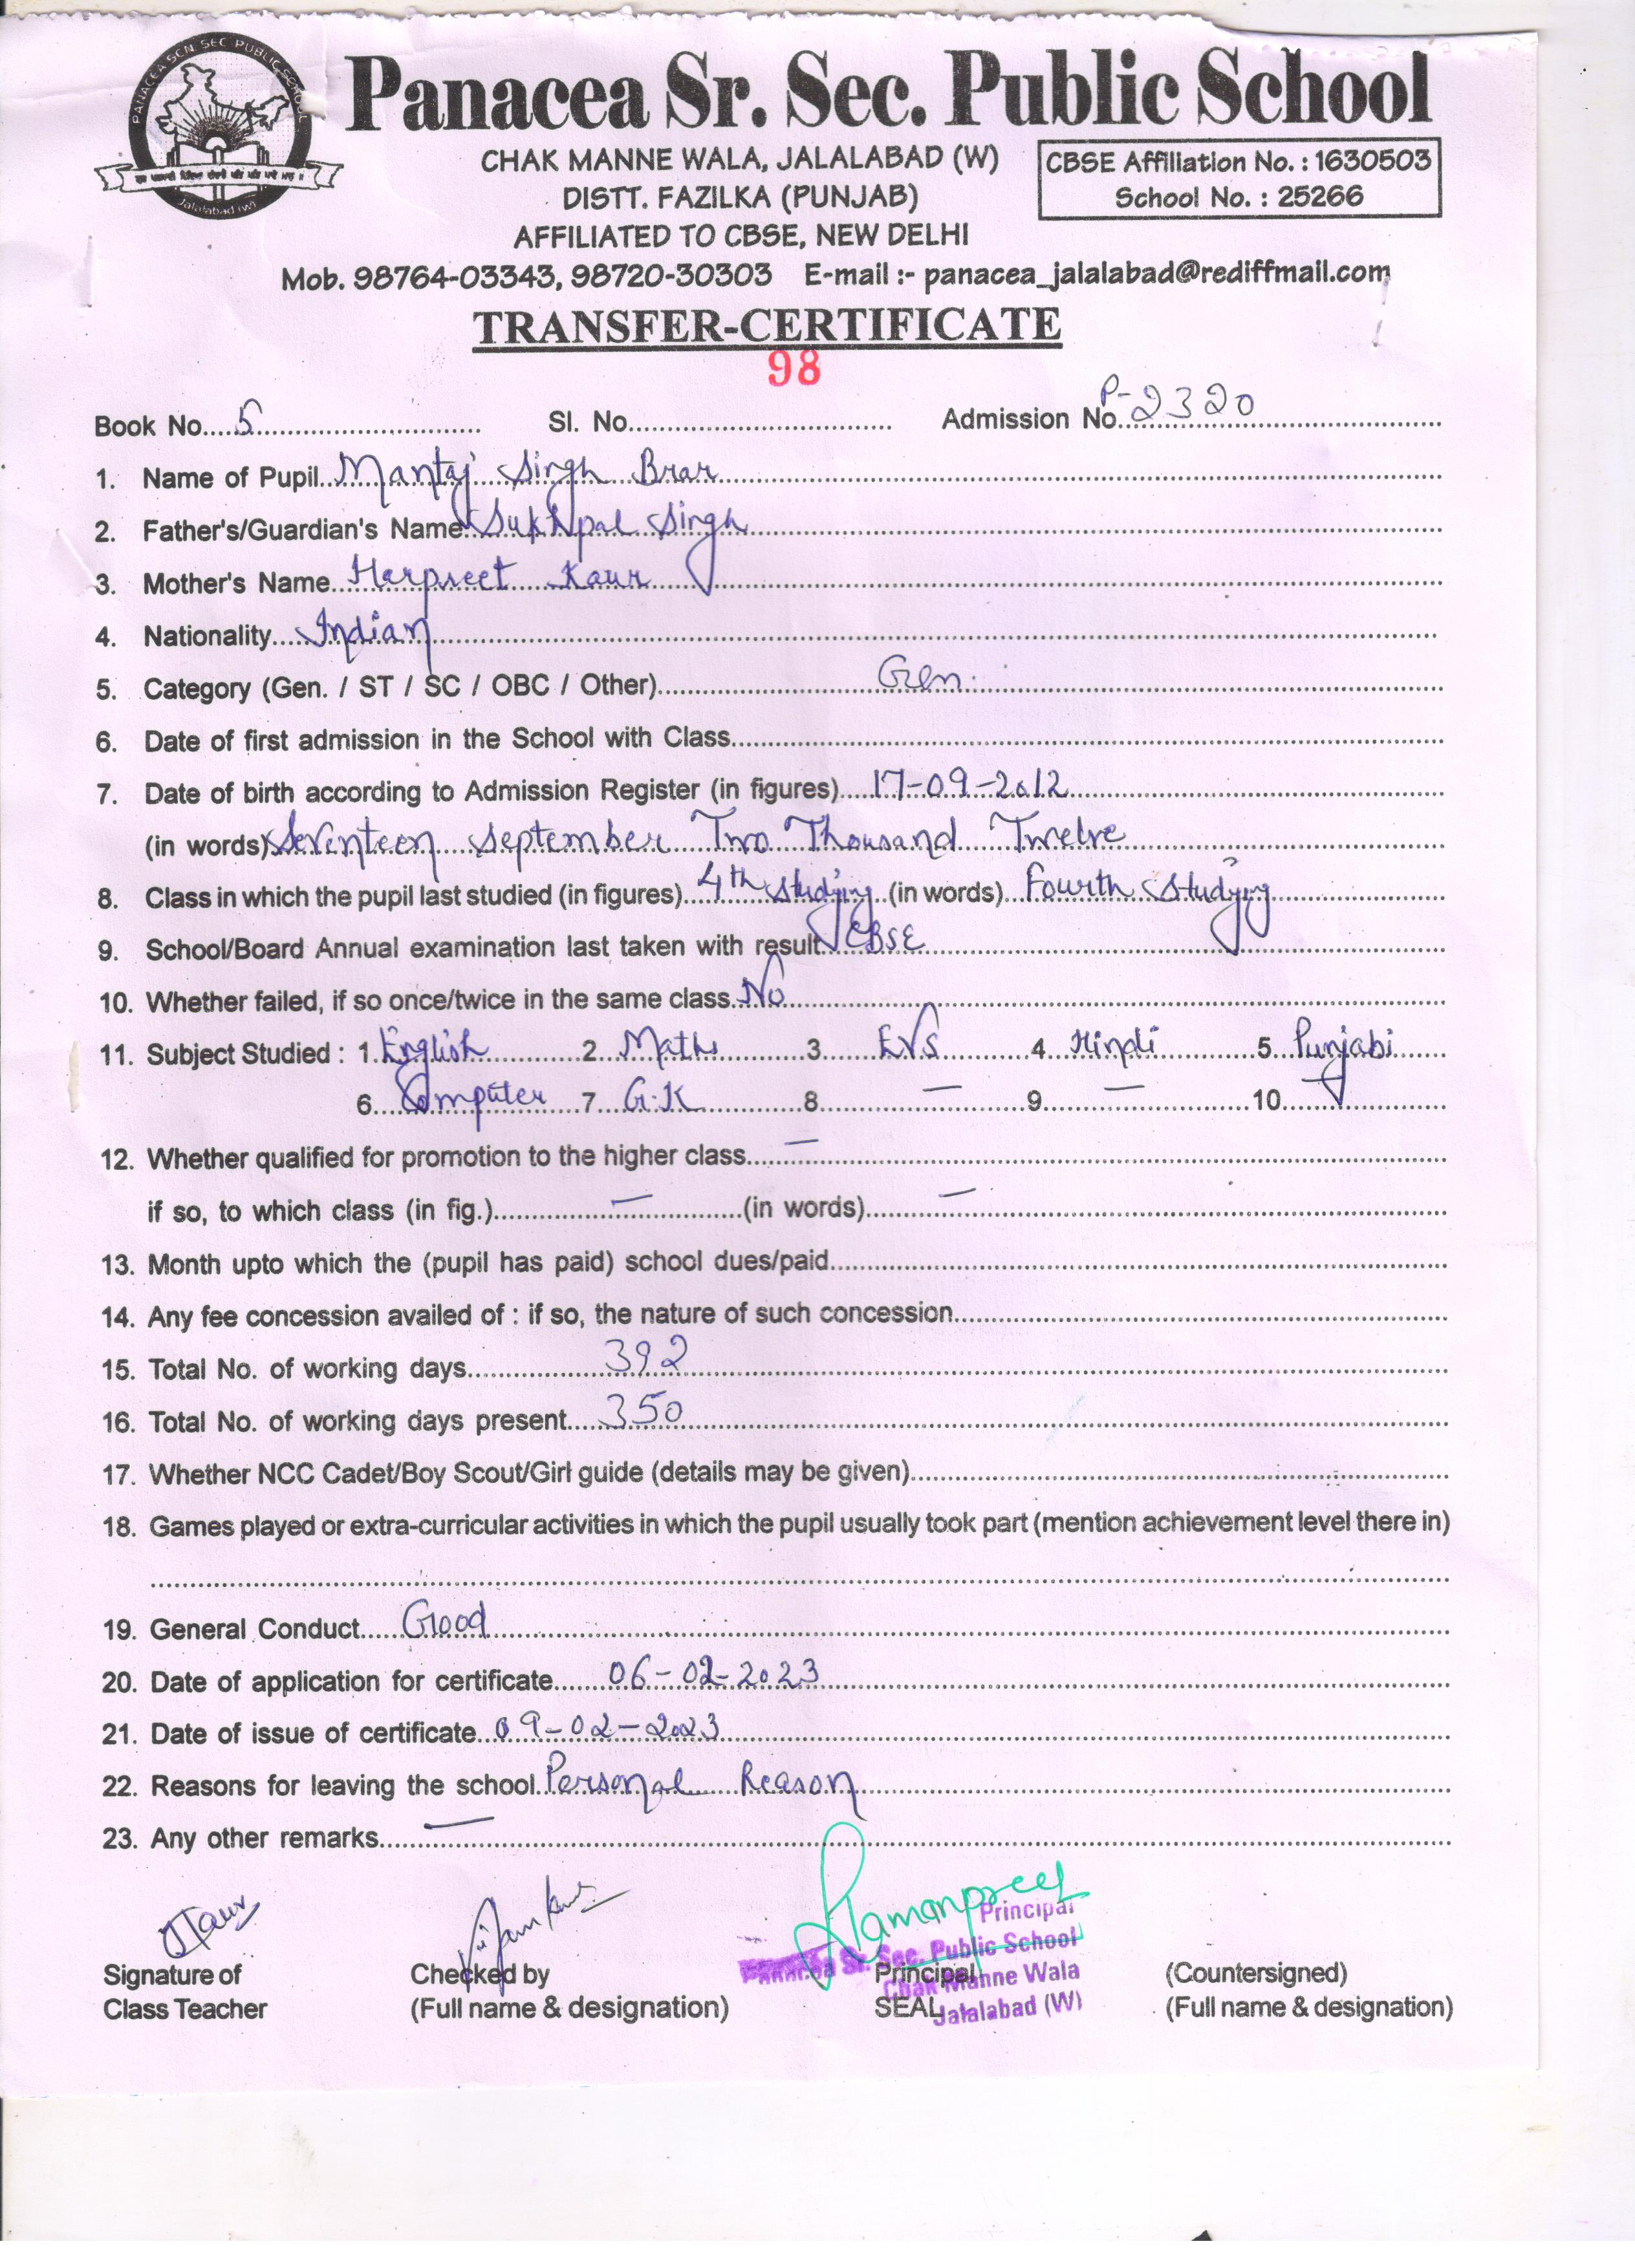 PANACEA SCN SEC PUBLIC SCHOOL
Jalalabad (W)
Panacea Sr. Sec. Public School
CHAK MANNE WALA, JALALABAD (W)
DISTT. FAZILKA (PUNJAB)
AFFILIATED TO CBSE, NEW DELHI
CBSE Affiliation No. : 1630503
School No. : 25266
Mob. 98764-03343, 98720-30303 E-mail :- panacea_jalalabad@rediffmail.com
TRANSFER-CERTIFICATE
98
Book No. 5 Sl. No. Admission No. P-2320
1. Name of Pupil Mantaj Singh Brar
2. Father's/Guardian's Name Sukhpal Singh
3. Mother's Name Harpreet Kaur
4. Nationality Indian
5. Category (Gen. / ST / SC / OBC / Other) Gen.
6. Date of first admission in the School with Class
7. Date of birth according to Admission Register (in figures) 17-09-2012
(in words) Seventeen September Two Thousand Twelve
8. Class in which the pupil last studied (in figures) 4th Studying (in words) Fourth Studying
9. School/Board Annual examination last taken with result CBSE
10. Whether failed, if so once/twice in the same class No
11. Subject Studied : 1. English 2. Maths 3. EVS 4. Hindi 5. Punjabi
6. Computer 7. G.K 8. — 9. — 10. —
12. Whether qualified for promotion to the higher class —
if so, to which class (in fig.) — (in words) —
13. Month upto which the (pupil has paid) school dues/paid
14. Any fee concession availed of : if so, the nature of such concession
15. Total No. of working days 392
16. Total No. of working days present 350
17. Whether NCC Cadet/Boy Scout/Girl guide (details may be given)
18. Games played or extra-curricular activities in which the pupil usually took part (mention achievement level there in)
19. General Conduct Good
20. Date of application for certificate 06-02-2023
21. Date of issue of certificate 09-02-2023
22. Reasons for leaving the school Personal Reason
23. Any other remarks —
Ramanpreet
Principal
Panacea Sr. Sec. Public School
Chak Manne Wala
Jalalabad (W)
Signature of Checked by Principal (Countersigned)
Class Teacher (Full name & designation) SEAL (Full name & designation)